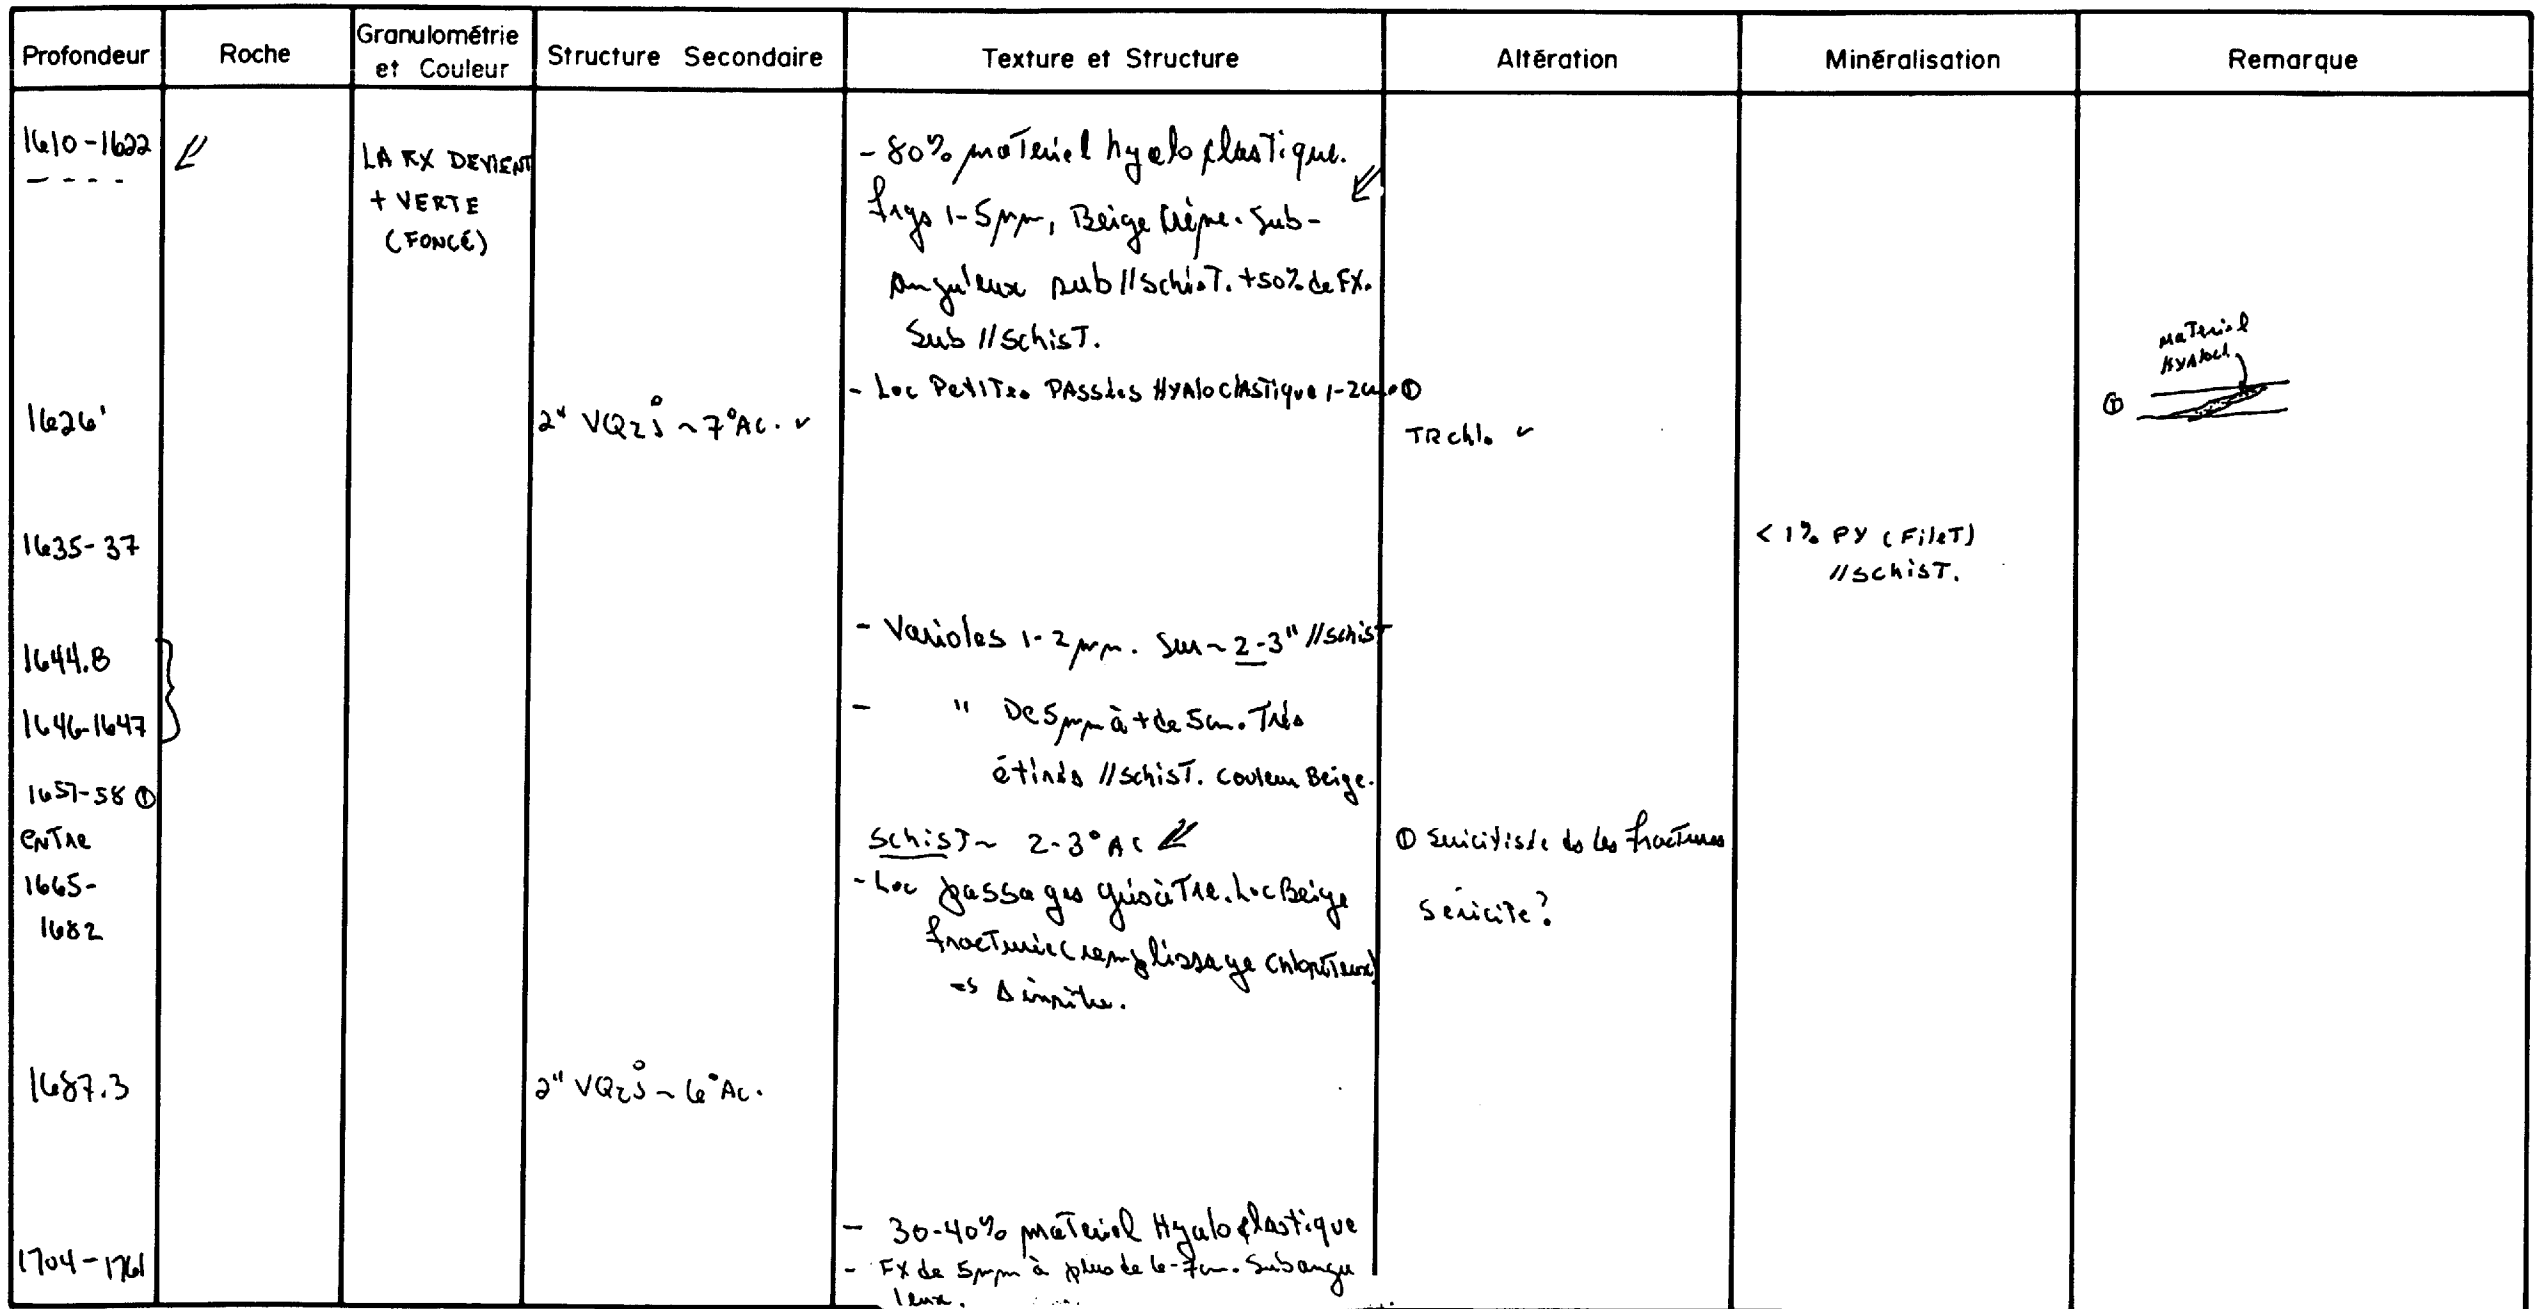 Profondeur
Roche
Granulométrie
et Couleur
Structure Secondaire
Texture et Structure
Altération
Minéralisation
Remarque
1610-1622
LA RX DEVIENT
+ VERTE
(FONCÉ)
- 80% materiel hyaloclastique.
frgs 1-5mm, Beige Crème. Sub-
anguleux sub // schist. +50% de FX.
Sub // schist.
- Loc Petites PASSÉES HYALOCLASTIQUE 1-2cm. ①
1626'
2" VQz ~ 7° AC.
TR chl.
materiel
HYALOCL
①
1635-37
< 1% PY (FileT)
// schist.
1644.8
- Varioles 1-2mm. Sur ~ 2-3" // schist
1646-1647
- " De 5mm à + de 5cm. Très
étirés // schist. Couleur Beige.
1657-58 ①
ENTRE
1665-
1682
Schist ~ 2-3° AC
- Loc passages Loc Beige
fracturée (remplissage chloriteux)
① Sericitisée ds les fractures
Séricite?
1687.3
2" VQz ~ 6° AC.
1704-1761
- 30-40% materiel Hyaloclastique
- FX de 5mm à plus de 6-7cm. Subangu
leux.